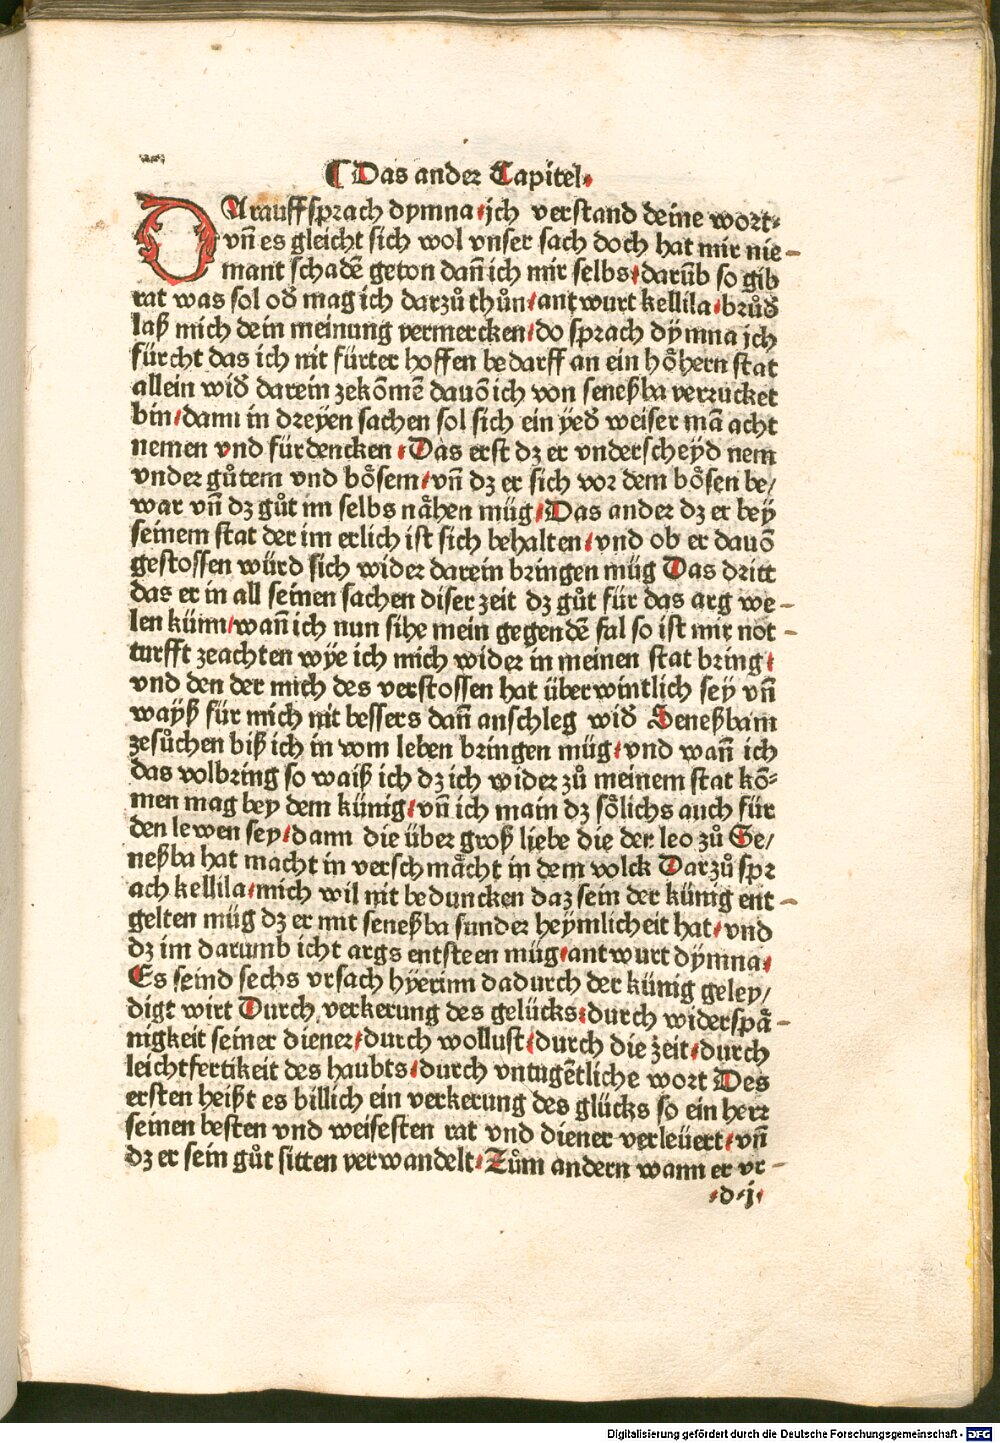 ¶ Das ander Capitel.
DArauff sprach dymna / ich verstand deine wort /
vn̄ es gleicht sich wol vnser sach doch hat mir nie-
mant schadē geton dan̄ ich mir selbs / darūb so gib
rat was sol od̄ mag ich darzů thůn / antwurt kellila / brůd̄
laß mich dein meinung vermercken / do sprach dÿmna ich
fürcht das ich nit fürter hoffen bedarff an ein hoͤhern stat
allein wid̄ darein zekōmē dauō ich von seneßba verzucket
bin / dann in dreÿen sachen sol sich ein ÿed̄ weiser mā acht
nemen vnd fürdencken / Das erst dz er vnderscheÿd nem
vnder gůtem vnd boͤsem / vn̄ dz er sich vor dem boͤsen be/
war vn̄ dz gůt im selbs naͤhen müg / Das ander dz er beÿ
seinem stat der im erlich ist sich behalten / vnd ob er dauō
gestossen würd sich wider darein bringen müg Das dritt
das er in all seinen sachen diser zeit dz gůt für das arg we-
len künn / wan̄ ich nun sihe mein gegendē fal so ist mir not-
turfft zeachten wÿe ich mich wider in meinen stat bring /
vnd den der mich des verstossen hat überwintlich seÿ vn̄
waÿß für mich nit bessers dan̄ anschleg wid̄ Seneßbam
zesůchen biß ich in vom leben bringen müg / vnd wan̄ ich
das volbring so waiß ich dz ich wider zů meinem stat kō-
men mag bey dem künig / vn̄ ich main dz soͤlichs auch für
den lewen sey / dann die über groß liebe die der leo zů Se/
neßba hat macht in verschmaͤcht in dem volck Darzů spr
ach kellila / mich wil nit beduncken daz sein der künig ent-
gelten müg dz er mit seneßba sunder heÿmlicheit hat / vnd
dz im darumb icht args entsteen müg / antwurt dÿmna /
Es seind sechs vrsach hÿerinn dadurch der künig geley/
digt wirt Durch verkerung des gelücks / durch widerspaͤ-
nigkeit seiner diener / durch wollust / durch die zeit / durch
leichtfertikeit des haubts / durch vntugētliche wort Des
ersten heißt es billich ein verkerung des glücks so ein herr
seinen besten vnd weisesten rat vnd diener verleüert / vn̄
dz er sein gůt sitten verwandelt / Zům andern wann er vr-
.d.j.
Digitalisierung gefördert durch die Deutsche Forschungsgemeinschaft - DFG